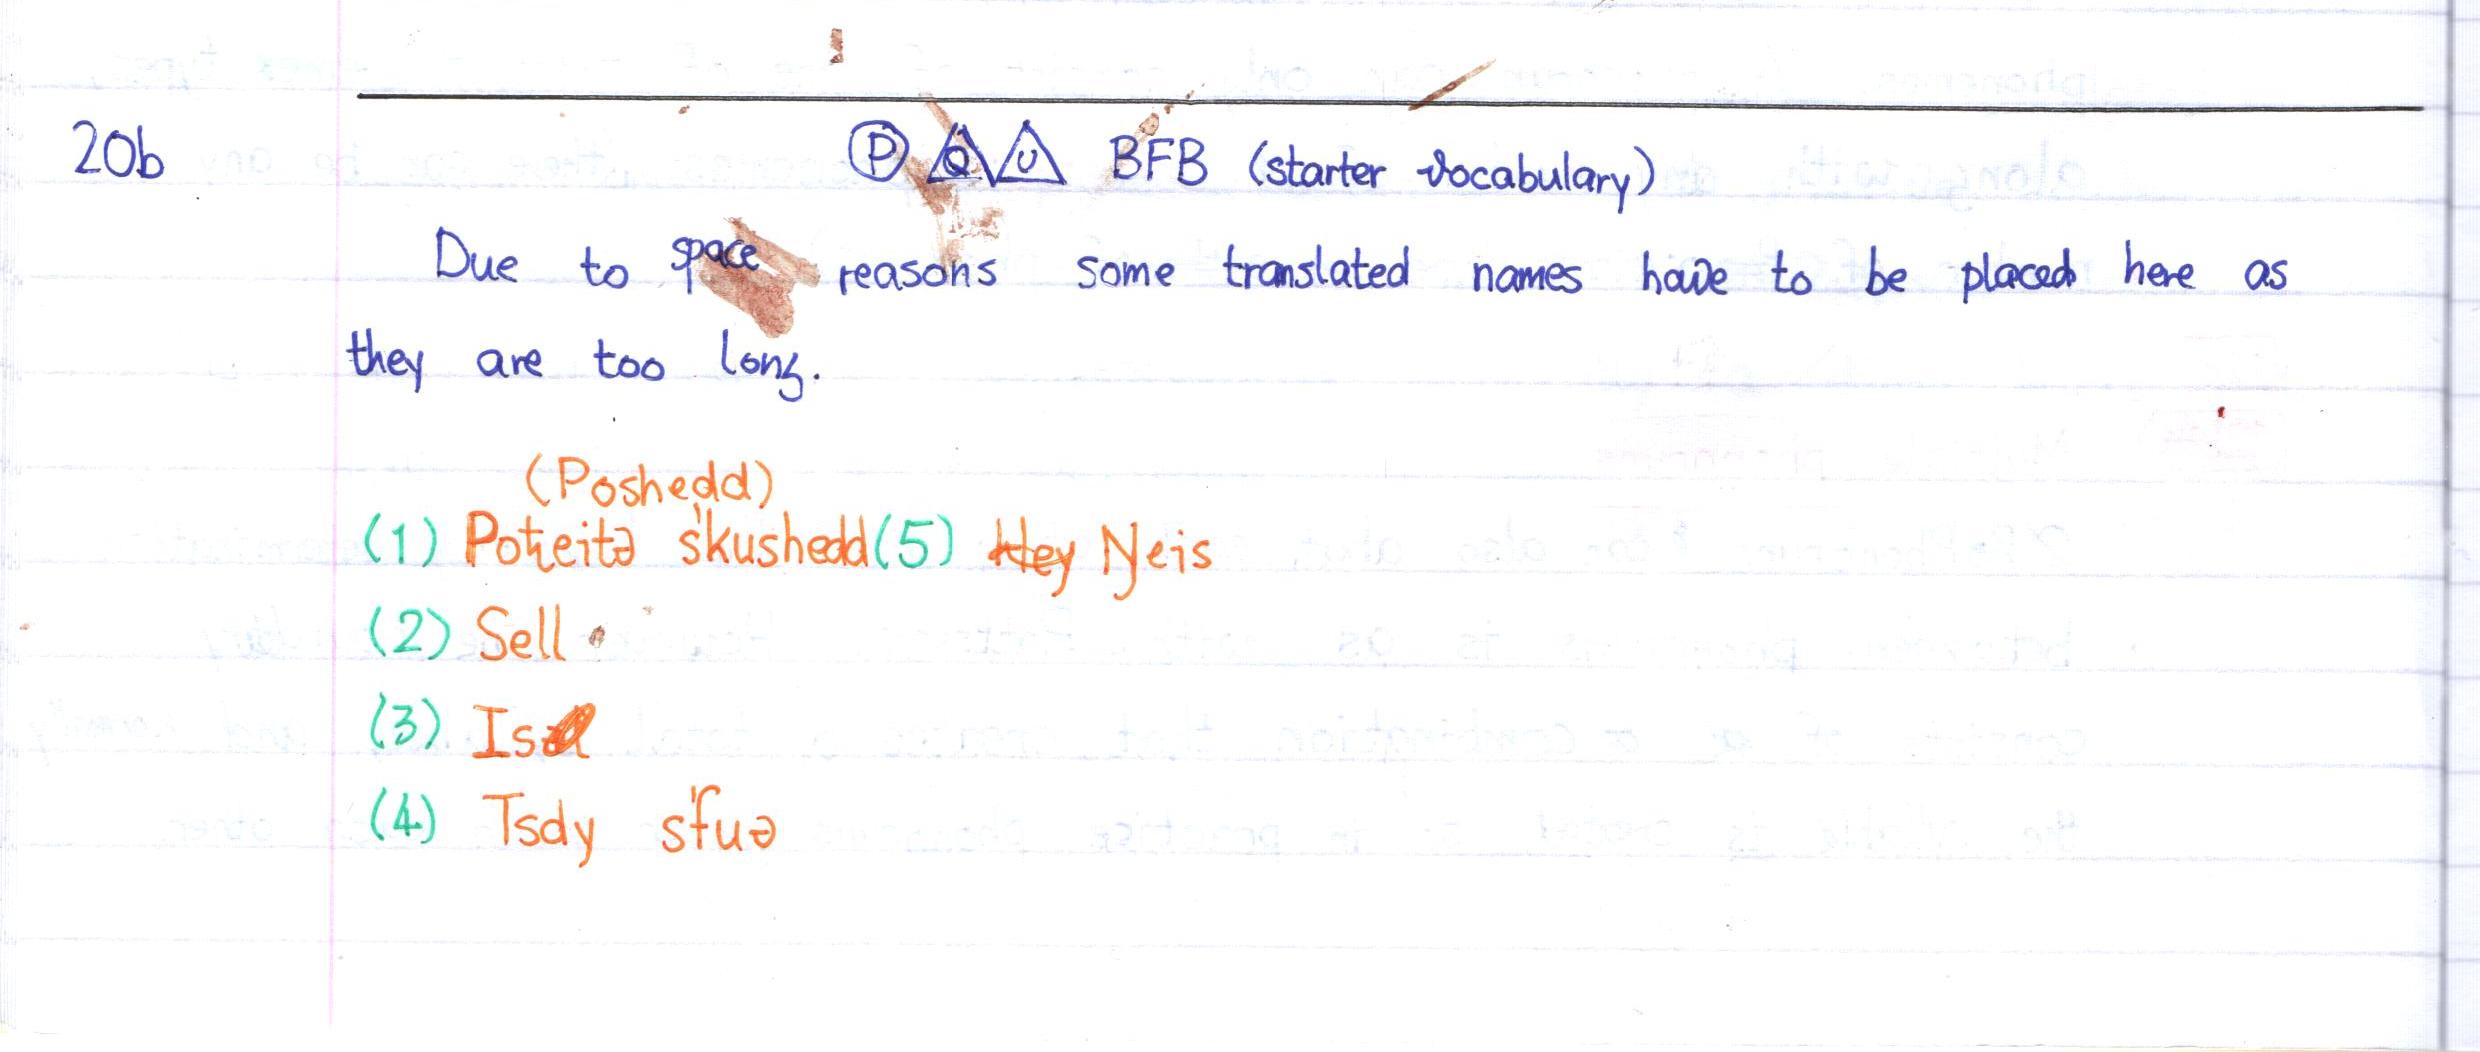 20b P Q U BFB (starter vocabulary)
Due to space reasons some translated names have to be placed here as
they are too long.
(Poshedd)
(1) Poteitə s'kushedd (5) Hey Ŋeis
(2) Sell
(3) Is
(4) Tsdy s'fuə